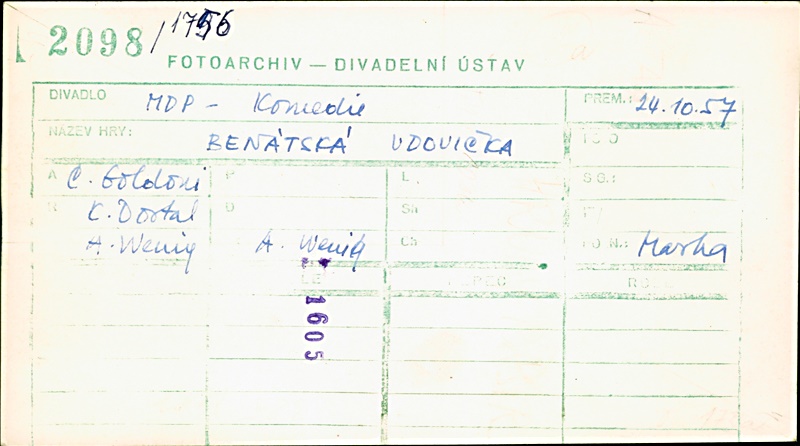 2098/1756
FOTOARCHIV — DIVADELNÍ ÚSTAV
DIVADLO MDP - Komedie PREM.: 24.10.57
NÁZEV HRY: BENÁTSKÁ VDOVIČKA
A C. Goldoni P L. SG.:
R K. Dostal D Sh
A. Wenig A. Wenig Ch FO N.: Marha
1605